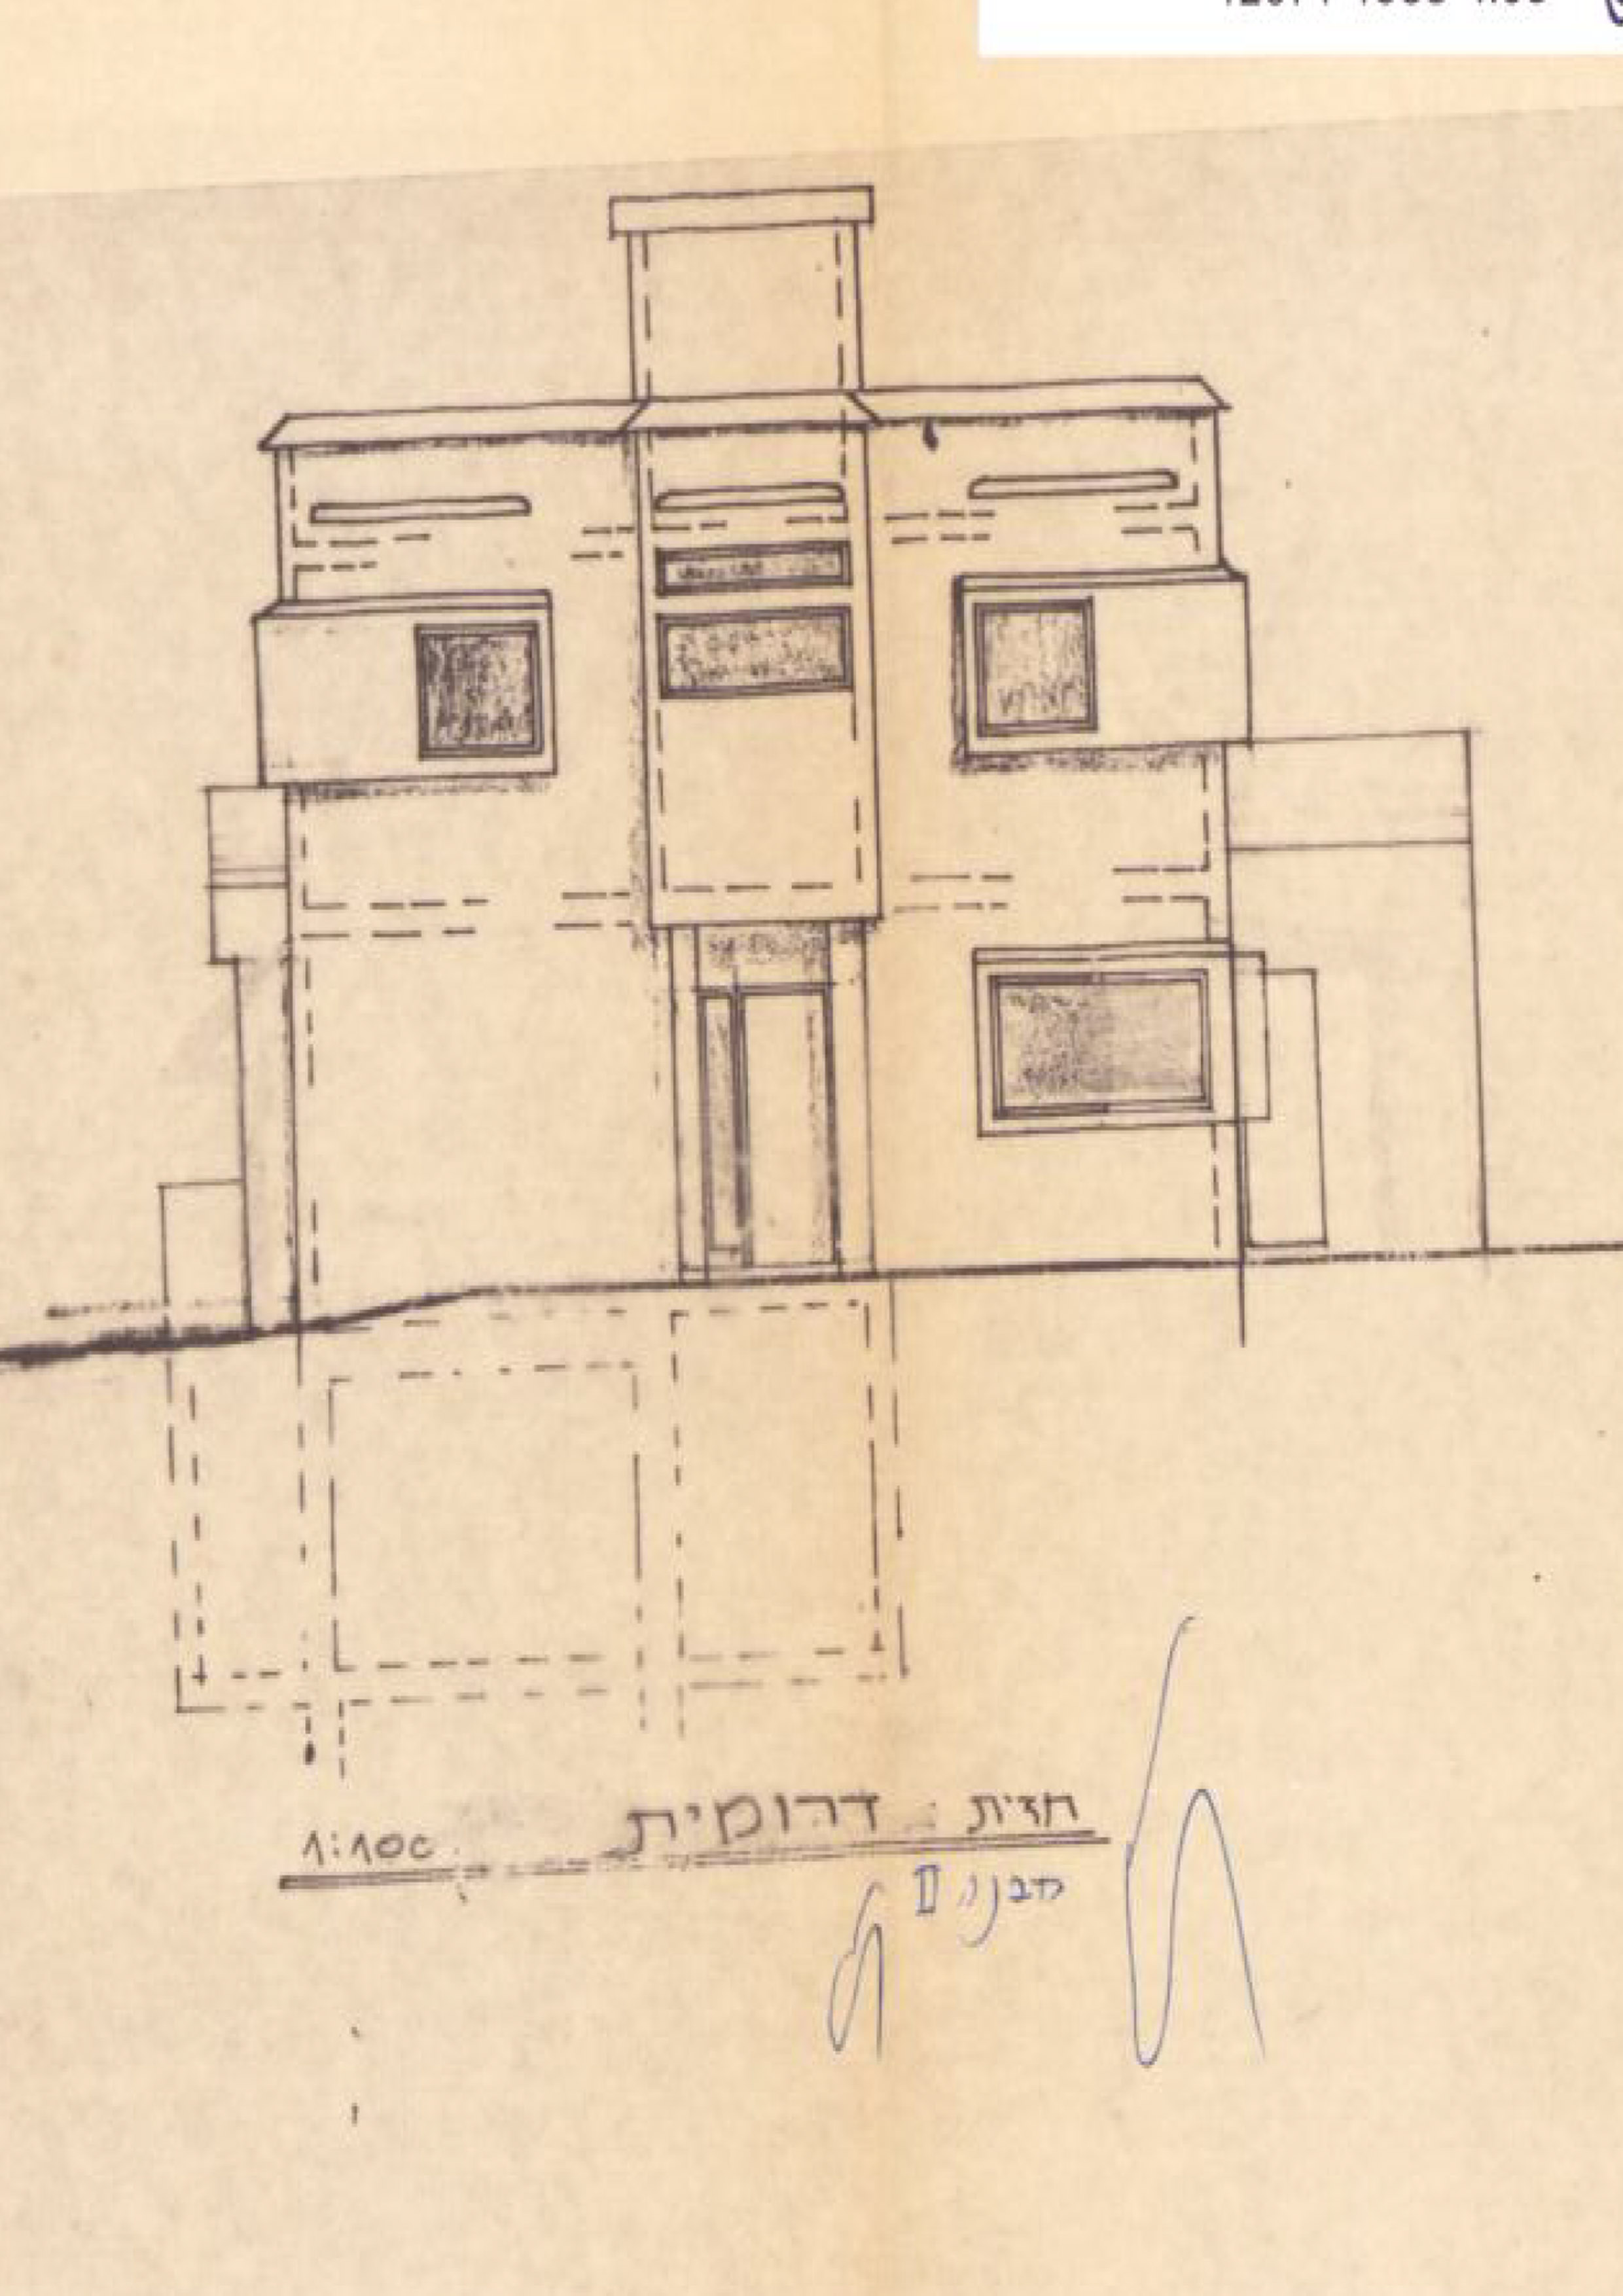 חזית דרומית 1:100
מבנה II